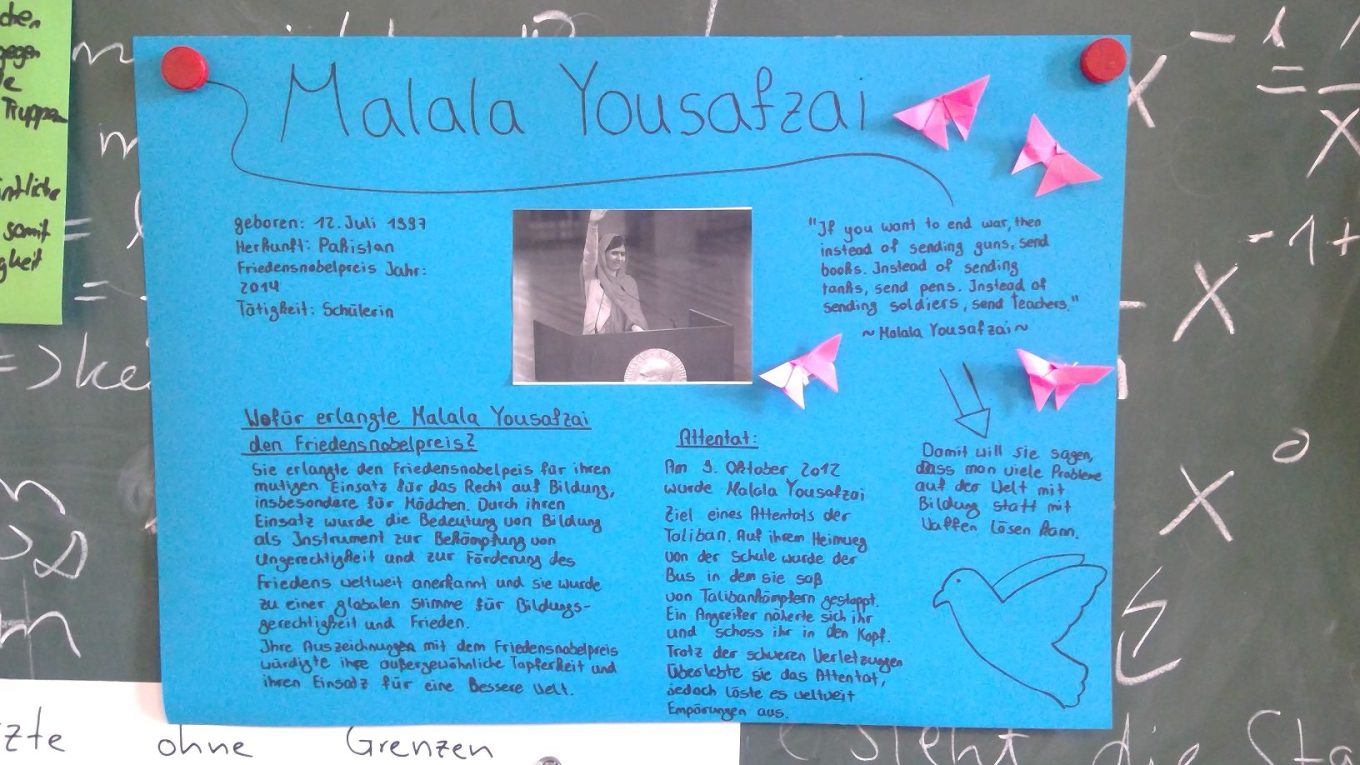 Malala Yousafzai
geboren: 12. Juli 1997
Herkunft: Pakistan
Friedensnobelpreis Jahr:
2014
Tätigkeit: Schülerin
"If you want to end war, then
instead of sending guns, send
books. Instead of sending
tanks, send pens. Instead of
sending soldiers, send teachers."
~Malala Yousafzai~
Damit will sie sagen,
dass man viele Probleme
auf der Welt mit
Bildung statt mit
Waffen lösen kann.
Wofür erlangte Malala Yousafzai
den Friedensnobelpreis?
Sie erlangte den Friedensnobelpeis für ihren
mutigen Einsatz für das Recht auf Bildung,
insbesondere für Mädchen. Durch ihren
Einsatz wurde die Bedeutung von Bildung
als Instrument zur Bekämpfung von
Ungerechtigkeit und zur Förderung des
Friedens weltweit anerkannt und sie wurde
zu einer globalen Stimme für Bildungs-
gerechtigkeit und Frieden.
Ihre Auszeichnungen mit dem Friedensnobelpreis
würdigte ihre außergewöhnliche Tapferkeit und
ihren Einsatz für eine Bessere Welt.
Attentat:
Am 9. Oktober 2012
wurde Malala Yousafzai
Ziel eines Attentats der
Taliban. Auf ihrem Heimweg
von der Schule wurde der
Bus in dem sie saß
von Talibankämpfern gestoppt.
Ein Angreifer näherte sich ihr
und schoss ihr in den Kopf.
Trotz der schweren Verletzungen
Überlebte sie das Attentat,
jedoch löste es weltweit
Empörungen aus.
gegen
Truppen
somit
ohne Grenzen
steht die